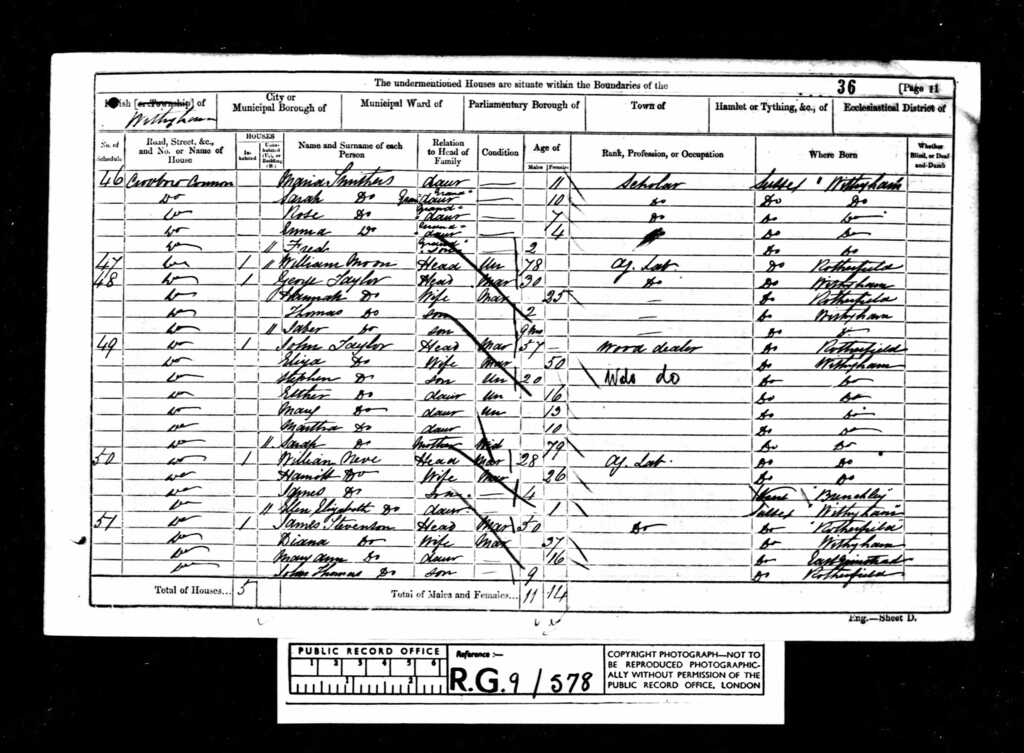 The undermentioned Houses are situate within the Boundaries of the 36 [Page 11
Parish [or Township] of City or Municipal Borough of Municipal Ward of Parliamentary Borough of Town of Hamlet or Tything, &c., of Ecclesiastical District of
Withyham
No. of Schedule Road, Street, &c., and No. or Name of House HOUSES Inhabited Uninhabited (U.), or Building (B.) Name and Surname of each Person Relation to Head of Family Condition Age of Males Females Rank, Profession, or Occupation Where Born Whether Blind, or Deaf-and-Dumb
46 Maria Smithers daur 11 Scholar Sussex Withyham
Do Sarah Do Grand daur 10 Do Do Do
Do Rose Do Grand daur 7 Do Do Do
Do Emma Do Grand daur 4 Do Do
Do Fred Grand son 2 Do Do
47 Do 1 William Moon Head Un 78 Ag. Lab Do Rotherfield
48 Do 1 George Taylor Head Mar 30 Do Do Withyham
Do Hannah Do Wife Mar 25 — Do Rotherfield
Do Thomas Do son — 2 Do Withyham
Do Do son — 9 Mo — Do Do
49 Do 1 John Taylor Head Mar 57 Wood dealer Do Rotherfield
Do Eliza Do Wife Mar 50 Do Withyham
Do Stephen Do son Un 20 Do Do Do
Do Esther Do daur Un 16 Do Do
Do Mary Do daur Un 13 Do Do
Do Martha Do daur 10 Do Do
Do Sarah Do Mother Wid 79 Do Do
50 Do 1 William Neve Head Mar 28 Ag. Lab. Do Do
Do Do Wife Mar 26 Do Do
Do James Do Son — 4 Kent Brenchley
Do Ellen Elizabeth Do daur — 1 Sussex Withyham
51 Do 1 James Stevenson Head Mar 50 Do Do Rotherfield
Do Diana Do Wife Mar 37 Do Withyham
Do Mary Ann Do daur — 16 Do East Grinstead
Do John Thomas Do son — 9 Do Rotherfield
Total of Houses... 5 Total of Males and Females... 11 14
Eng.—Sheet D.
PUBLIC RECORD OFFICE
1 2 3 4 5 6
Reference :—
R.G. 9 / 578
COPYRIGHT PHOTOGRAPH—NOT TO BE REPRODUCED PHOTOGRAPHICALLY WITHOUT PERMISSION OF THE PUBLIC RECORD OFFICE, LONDON